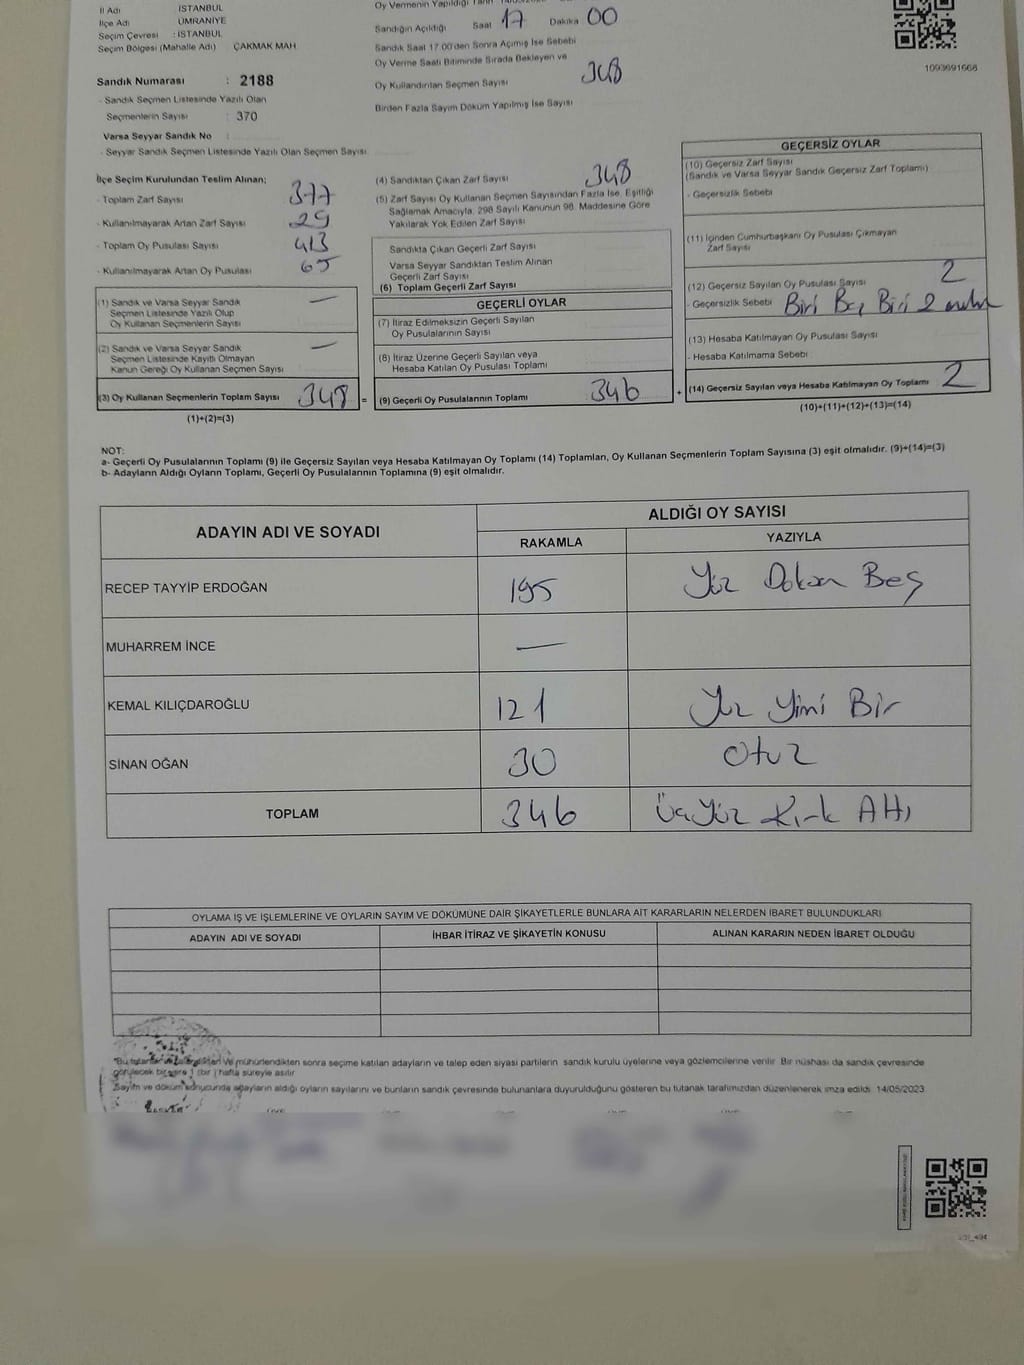 İl Adı İSTANBUL
İlçe Adı ÜMRANİYE
Seçim Çevresi : İSTANBUL
Seçim Bölgesi (Mahalle Adı) ÇAKMAK MAH
Sandık Numarası : 2188
- Sandık Seçmen Listesinde Yazılı Olan
Seçmenlerin Sayısı : 370
Varsa Seyyar Sandık No :
- Seyyar Sandık Seçmen Listesinde Yazılı Olan Seçmen Sayısı
Oy Vermenin Yapıldığı Tarih
Sandığın Açıldığı Saat 17 Dakika 00
Sandık Saat 17.00'den Sonra Açımış İse Sebebi
Oy Verme Saati Bitiminde Sırada Bekleyen ve
Oy Kullandırılan Seçmen Sayısı 348
Birden Fazla Sayım Döküm Yapılmış İse Sayısı
1093691668
İlçe Seçim Kurulundan Teslim Alınan;
- Toplam Zarf Sayısı 377
- Kullanılmayarak Artan Zarf Sayısı 29
- Toplam Oy Pusulası Sayısı 413
- Kullanılmayarak Artan Oy Pusulası 65
(1) Sandık ve Varsa Seyyar Sandık —
Seçmen Listesinde Yazılı Olup
Oy Kullanan Seçmenlerin Sayısı
(2) Sandık ve Varsa Seyyar Sandık —
Seçmen Listesinde Kayıtlı Olmayan
Kanun Gereği Oy Kullanan Seçmen Sayısı
(3) Oy Kullanan Seçmenlerin Toplam Sayısı 348 =
(1)+(2)=(3)
(4) Sandıktan Çıkan Zarf Sayısı 348
(5) Zarf Sayısı Oy Kullanan Seçmen Sayısından Fazla İse, Eşitliği
Sağlamak Amacıyla, 298 Sayılı Kanunun 98. Maddesine Göre
Yakılarak Yok Edilen Zarf Sayısı
Sandıkta Çıkan Geçerli Zarf Sayısı
Varsa Seyyar Sandıktan Teslim Alınan
Geçerli Zarf Sayısı
(6) Toplam Geçerli Zarf Sayısı
GEÇERLİ OYLAR
(7) İtiraz Edilmeksizin Geçerli Sayılan
Oy Pusulalarının Sayısı
(8) İtiraz Üzerine Geçerli Sayılan veya
Hesaba Katılan Oy Pusulası Toplamı
(9) Geçerli Oy Pusulalarının Toplamı 346 +
GEÇERSİZ OYLAR
(10) Geçersiz Zarf Sayısı
(Sandık ve Varsa Seyyar Sandık Geçersiz Zarf Toplamı)
- Geçersizlik Sebebi
(11) İçinden Cumhurbaşkanı Oy Pusulası Çıkmayan
Zarf Sayısı
(12) Geçersiz Sayılan Oy Pusulası Sayısı 2
- Geçersizlik Sebebi Biri Boş Biri 2
(13) Hesaba Katılmayan Oy Pusulası Sayısı
- Hesaba Katılmama Sebebi
(14) Geçersiz Sayılan veya Hesaba Katılmayan Oy Toplamı 2
(10)+(11)+(12)+(13)=(14)
NOT:
a- Geçerli Oy Pusulalarının Toplamı (9) ile Geçersiz Sayılan veya Hesaba Katılmayan Oy Toplamı (14) Toplamları, Oy Kullanan Seçmenlerin Toplam Sayısına (3) eşit olmalıdır. (9)+(14)=(3)
b- Adayların Aldığı Oyların Toplamı, Geçerli Oy Pusulalarının Toplamına (9) eşit olmalıdır.
ADAYIN ADI VE SOYADI ALDIĞI OY SAYISI
RAKAMLA YAZIYLA
RECEP TAYYİP ERDOĞAN 195 Yüz Doksan Beş
MUHARREM İNCE —
KEMAL KILIÇDAROĞLU 121 Yüz Yirmi Bir
SİNAN OĞAN 30 Otuz
TOPLAM 346 ÜçYüz Kırk Altı
OYLAMA İŞ VE İŞLEMLERİNE VE OYLARIN SAYIM VE DÖKÜMÜNE DAİR ŞİKAYETLERLE BUNLARA AİT KARARLARIN NELERDEN İBARET BULUNDUKLARI
ADAYIN ADI VE SOYADI İHBAR İTİRAZ VE ŞİKAYETİN KONUSU ALINAN KARARIN NEDEN İBARET OLDUĞU
ve mühürlendikten sonra seçime katılan adayların ve talep eden siyasi partilerin sandık kurulu üyelerine veya gözlemcilerine verilir. Bir nüshası da sandık çevresinde
görülecek bir yere 1 (bir ) hafta süreyle asılır
Sayım ve döküm sonucunda adayların aldığı oyların sayılarını ve bunların sandık çevresinde bulunanlara duyurulduğunu gösteren bu tutanak tarafımızdan düzenlenerek imza edildi. 14/05/2023